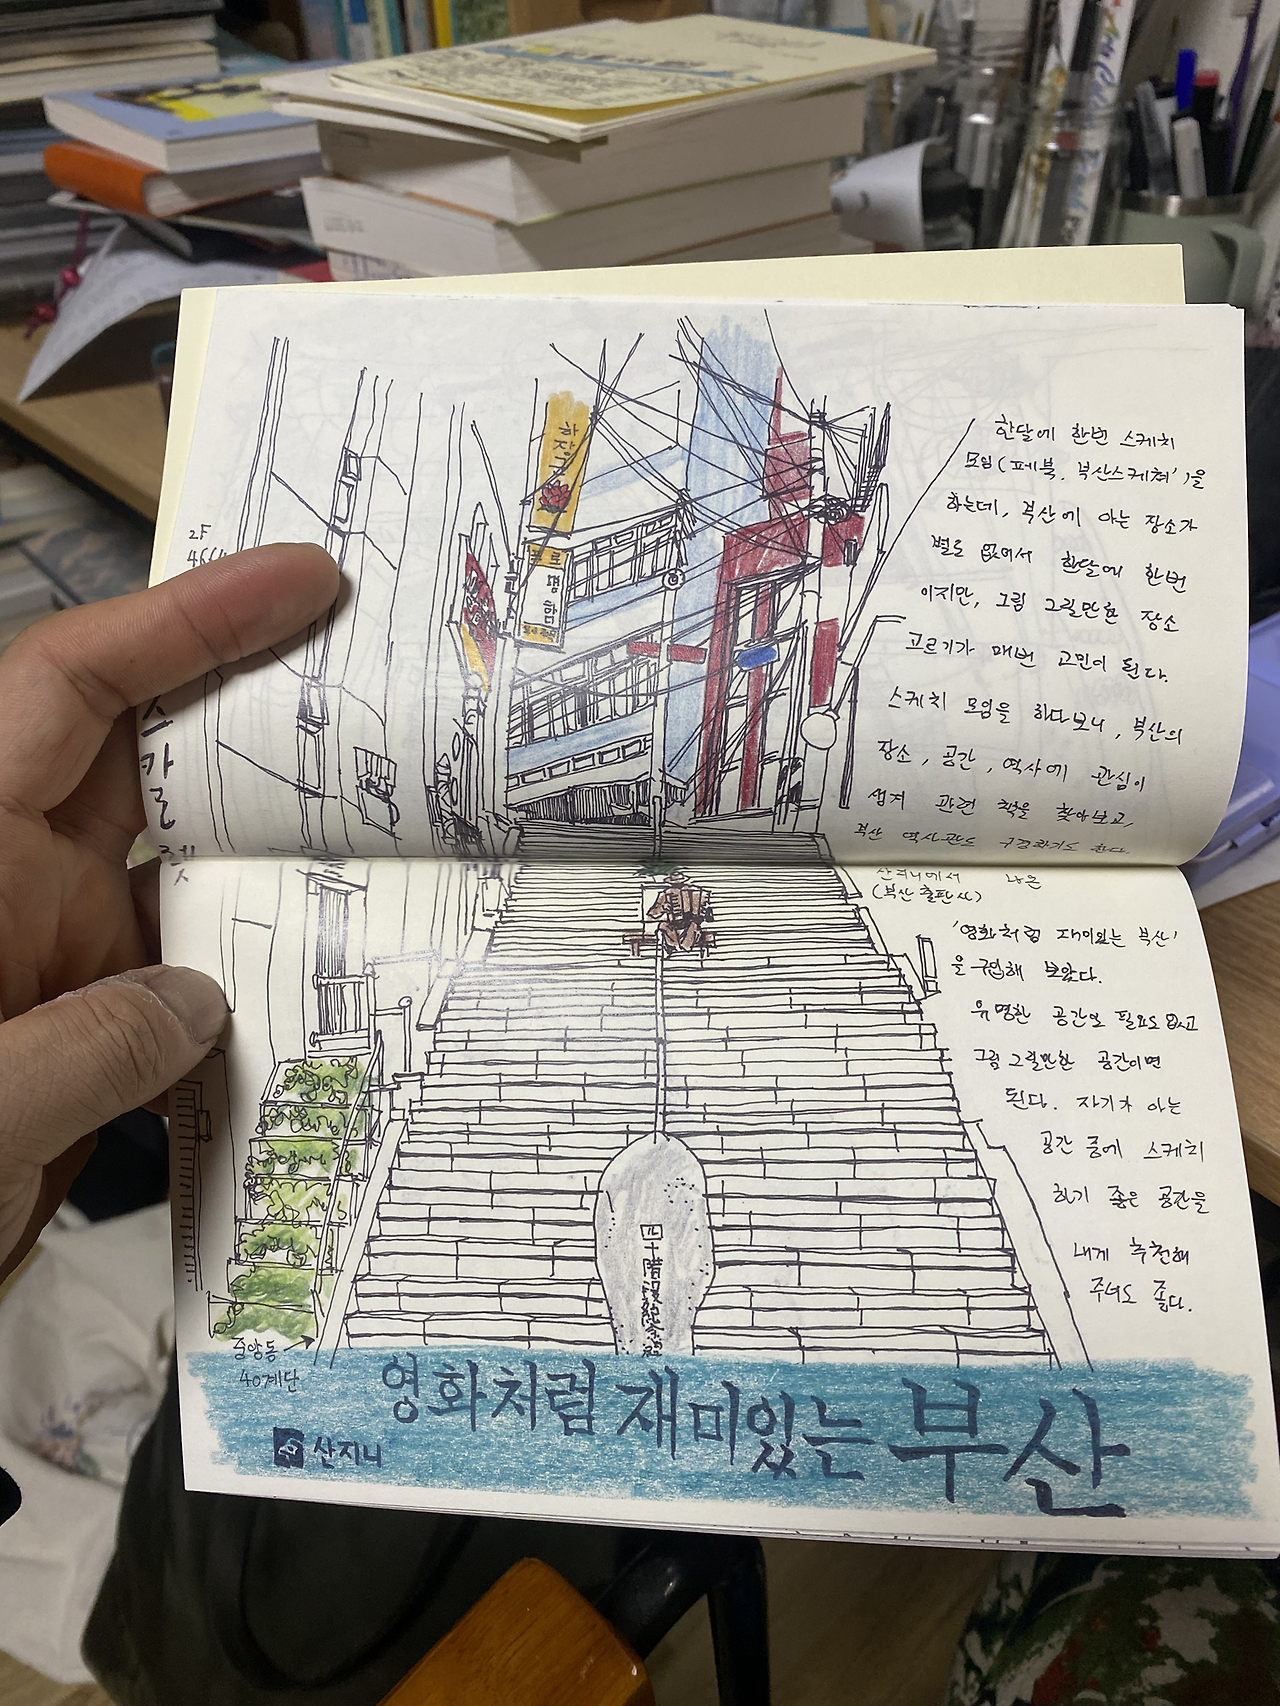 하장군
명함
2F
스카르렛
한달에 한번 스케치
모임(페북. 부산스케쳐')을
하는데, 부산에 아는 장소가
별로 없어서 한달에 한번
이지만, 그림 그릴만한 장소
고르기가 매번 고민이 된다.
스케치 모임을 하다보니, 부산의
장소, 공간, 역사에 관심이
생겨 관련 책을 찾아보고,
부산 역사관도 구경하기도 한다.
산지니에서 낳은
(부산 출판사)
'영화처럼 재미있는 부산'
을 구입해 보았다.
유명한 공간도 필요도 없고
그림 그릴만한 공간이면
된다. 자기가 아는
공간 중에 스케치
하기 좋은 공간을
내게 추천해
주녀도 좋다.
四十階段紀念碑
중앙동
40계단
영화처럼 재미있는 부산
산지니